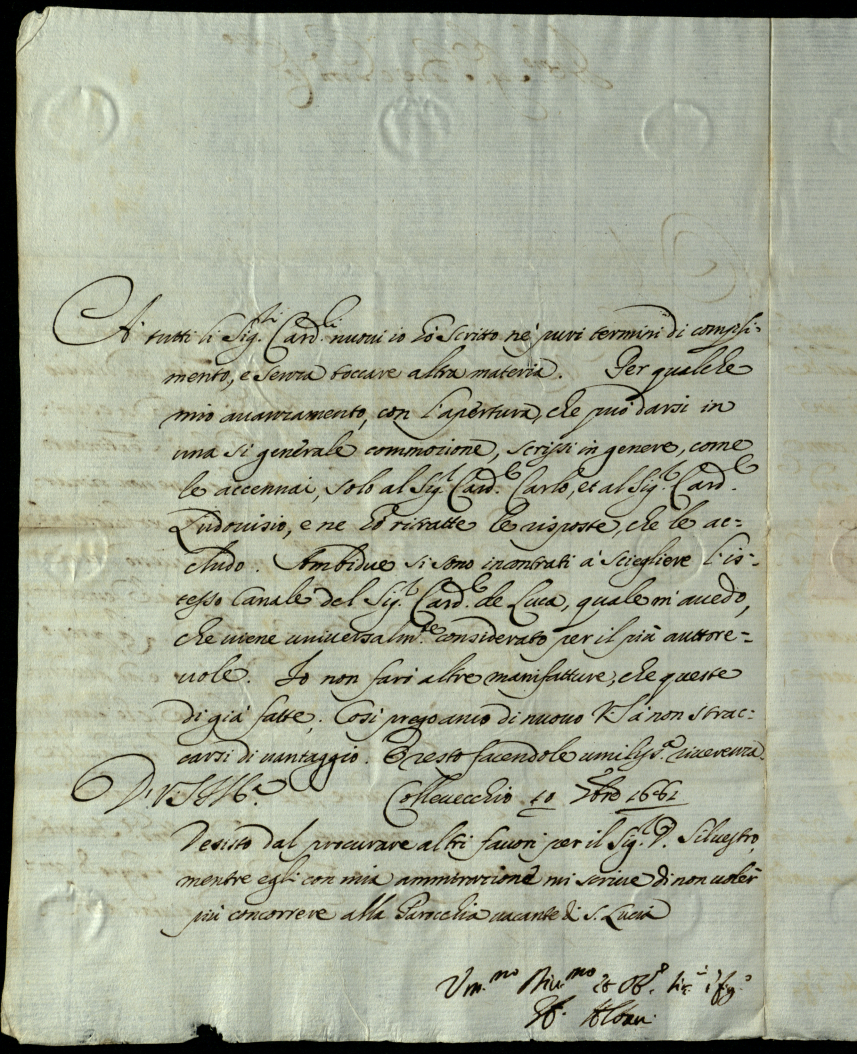 A' tutti li Sig.ri Card.li nuoui io hò scritto ne' puri termini di compli=
mento, e senza toccare altra materia. Per qualche
mio auanzamento, con l'apertura, che può darsi in
una si generale commozione, scrissi in genere, come
le accennai, solo al Sig.r Card.le Carlo, et al Sig.r Card.le
Ludouisio, e ne hò ritratte le risposte, che le ac=
cludo. Ambidue si sono incontrati a' sciegliere l'is=
tesso Canale del Sig.r Card.le de Luca, quale m'auedo,
che uiene uniuersalm.te considerato per il più auttore=
uole. Io non farò altre manifatture, che queste
di già fatte. Così prego anco di nuouo VS à non strac=
carsi di uantaggio. E resto facendole umiliss.a riuerenza.
Di VS Ill.ma Colleuecchio 10 1681
Desisto dal procurare altri fauori per il Sig.r D. Siluestro,
mentre egli con mia ammirazione mi scriue di non uoler
più concorrere alla Parocchia uacante di S. Lucia
Um.mo Diu.mo et Ob.